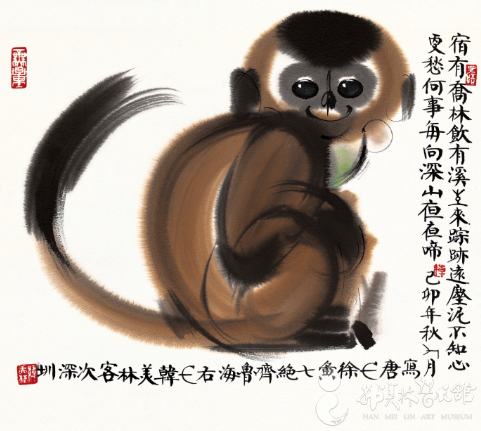 宿有喬林飲有溪生来踪跡遠塵泥不知心
更愁何事每向深山夜夜啼己卯年秋八月
寫唐人徐夤七絕齊魯海右人韓美林客次深圳
韩美林艺术馆
HAN MEI LIN ART MUSEUM